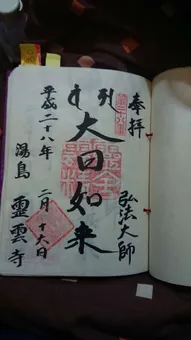 奉拝
弘法大師
大日如来
平成二十八年
二月十六日
湯島
霊雲寺